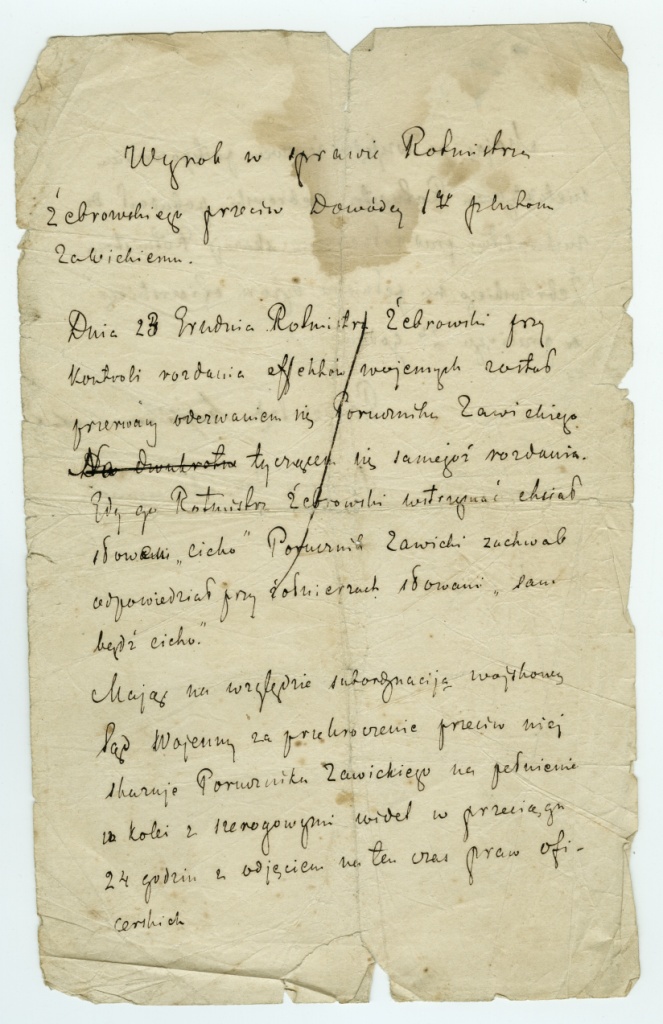 Wyrok w sprawie Rotmistrza
Żebrowskiego przeciw Dowódcy 1go plutonu
Zawickiemu.
Dnia 23 Grudnia Rotmistrz Żebrowski przy
Kontroli rozdania effektów wojennych został
przerwany odezwaniem się Porucznika Zawickiego
Na dwukrotne tyczącem się samegoż rozdania.
Gdy go Rotmistrz Żebrowski wstrzymać chciał
słowem „cicho” Porucznik Zawicki
odpowiedział przy żołnierzach słowami „sam
bądź cicho.”
Mając na względzie subordynaciją wojskową
Sąd Wojenny za przekroczenie przeciw niej
skazuje Porucznika Zawickiego na pełnienie
kolei z szeregowymi widet w przeciągu
24 godzin z odjęciem na ten czas praw ofi-
cerskich